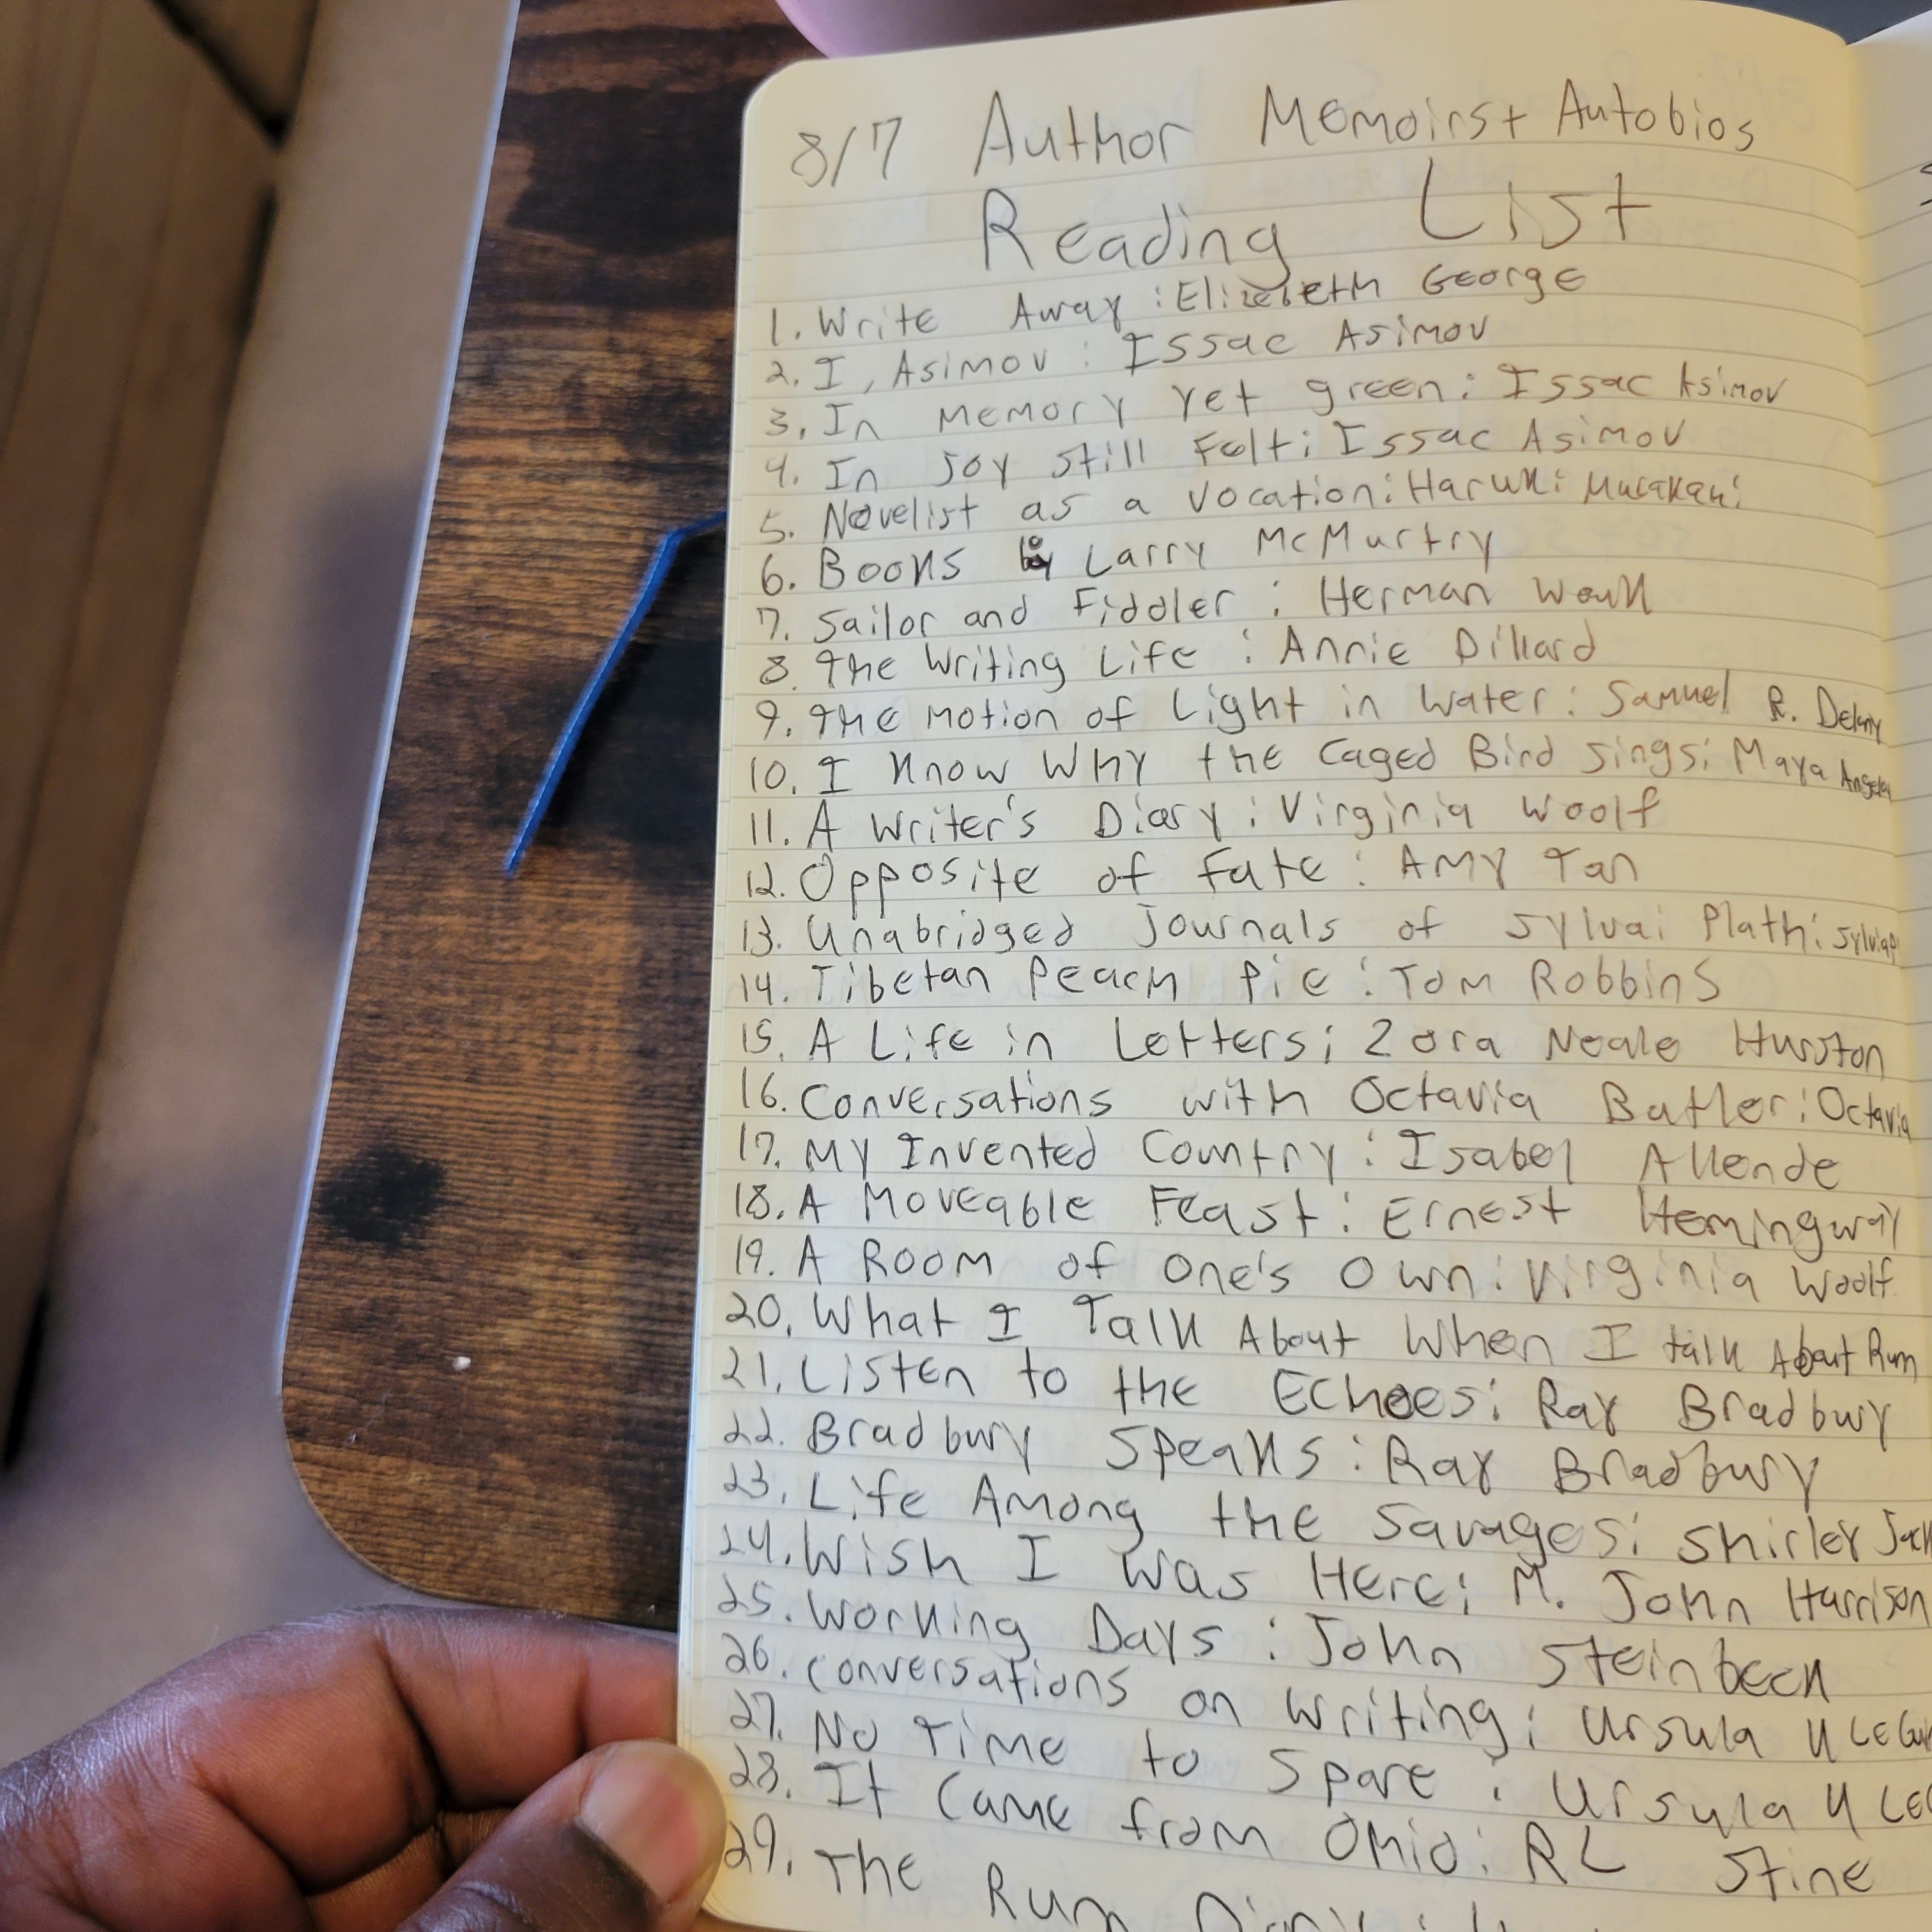 8/7 Author Memoirs + Autobios
Reading List
1. Write Away : Elizebeth George
2. I, Asimov : Issac Asimov
3. In Memory Yet green : Issac Asimov
4. In Joy Still Felt : Issac Asimov
5. Novelist as a Vocation : Haruki Murakami
6. Books by Larry McMurtry
7. Sailor and Fiddler : Herman Wouk
8. The Writing Life : Annie Dillard
9. The Motion of Light in Water : Samuel R. Delany
10. I Know Why the Caged Bird Sings : Maya Angelou
11. A Writer's Diary : Virginia Woolf
12. Opposite of Fate : Amy Tan
13. Unabridged Journals of Sylvai Plath : Sylvia P
14. Tibetan Peach Pie : Tom Robbins
15. A Life in Letters : Zora Neale Hurston
16. Conversations with Octavia Butler : Octavia
17. My Invented Country : Isabel Allende
18. A Moveable Feast : Ernest Hemingway
19. A Room of One's Own : Virginia Woolf
20. What I Talk About When I talk About Run
21. Listen to the Echoes : Ray Bradbury
22. Bradbury Speaks : Ray Bradbury
23. Life Among the Savages : Shirley Jack
24. Wish I Was Here : M. John Harrison
25. Working Days : John Steinbeck
26. Conversations on Writing : Ursula K Le Gui
27. No Time to Spare : Ursula K Le G
28. It Came from Ohio : RL Stine
29. The Rum Diary :